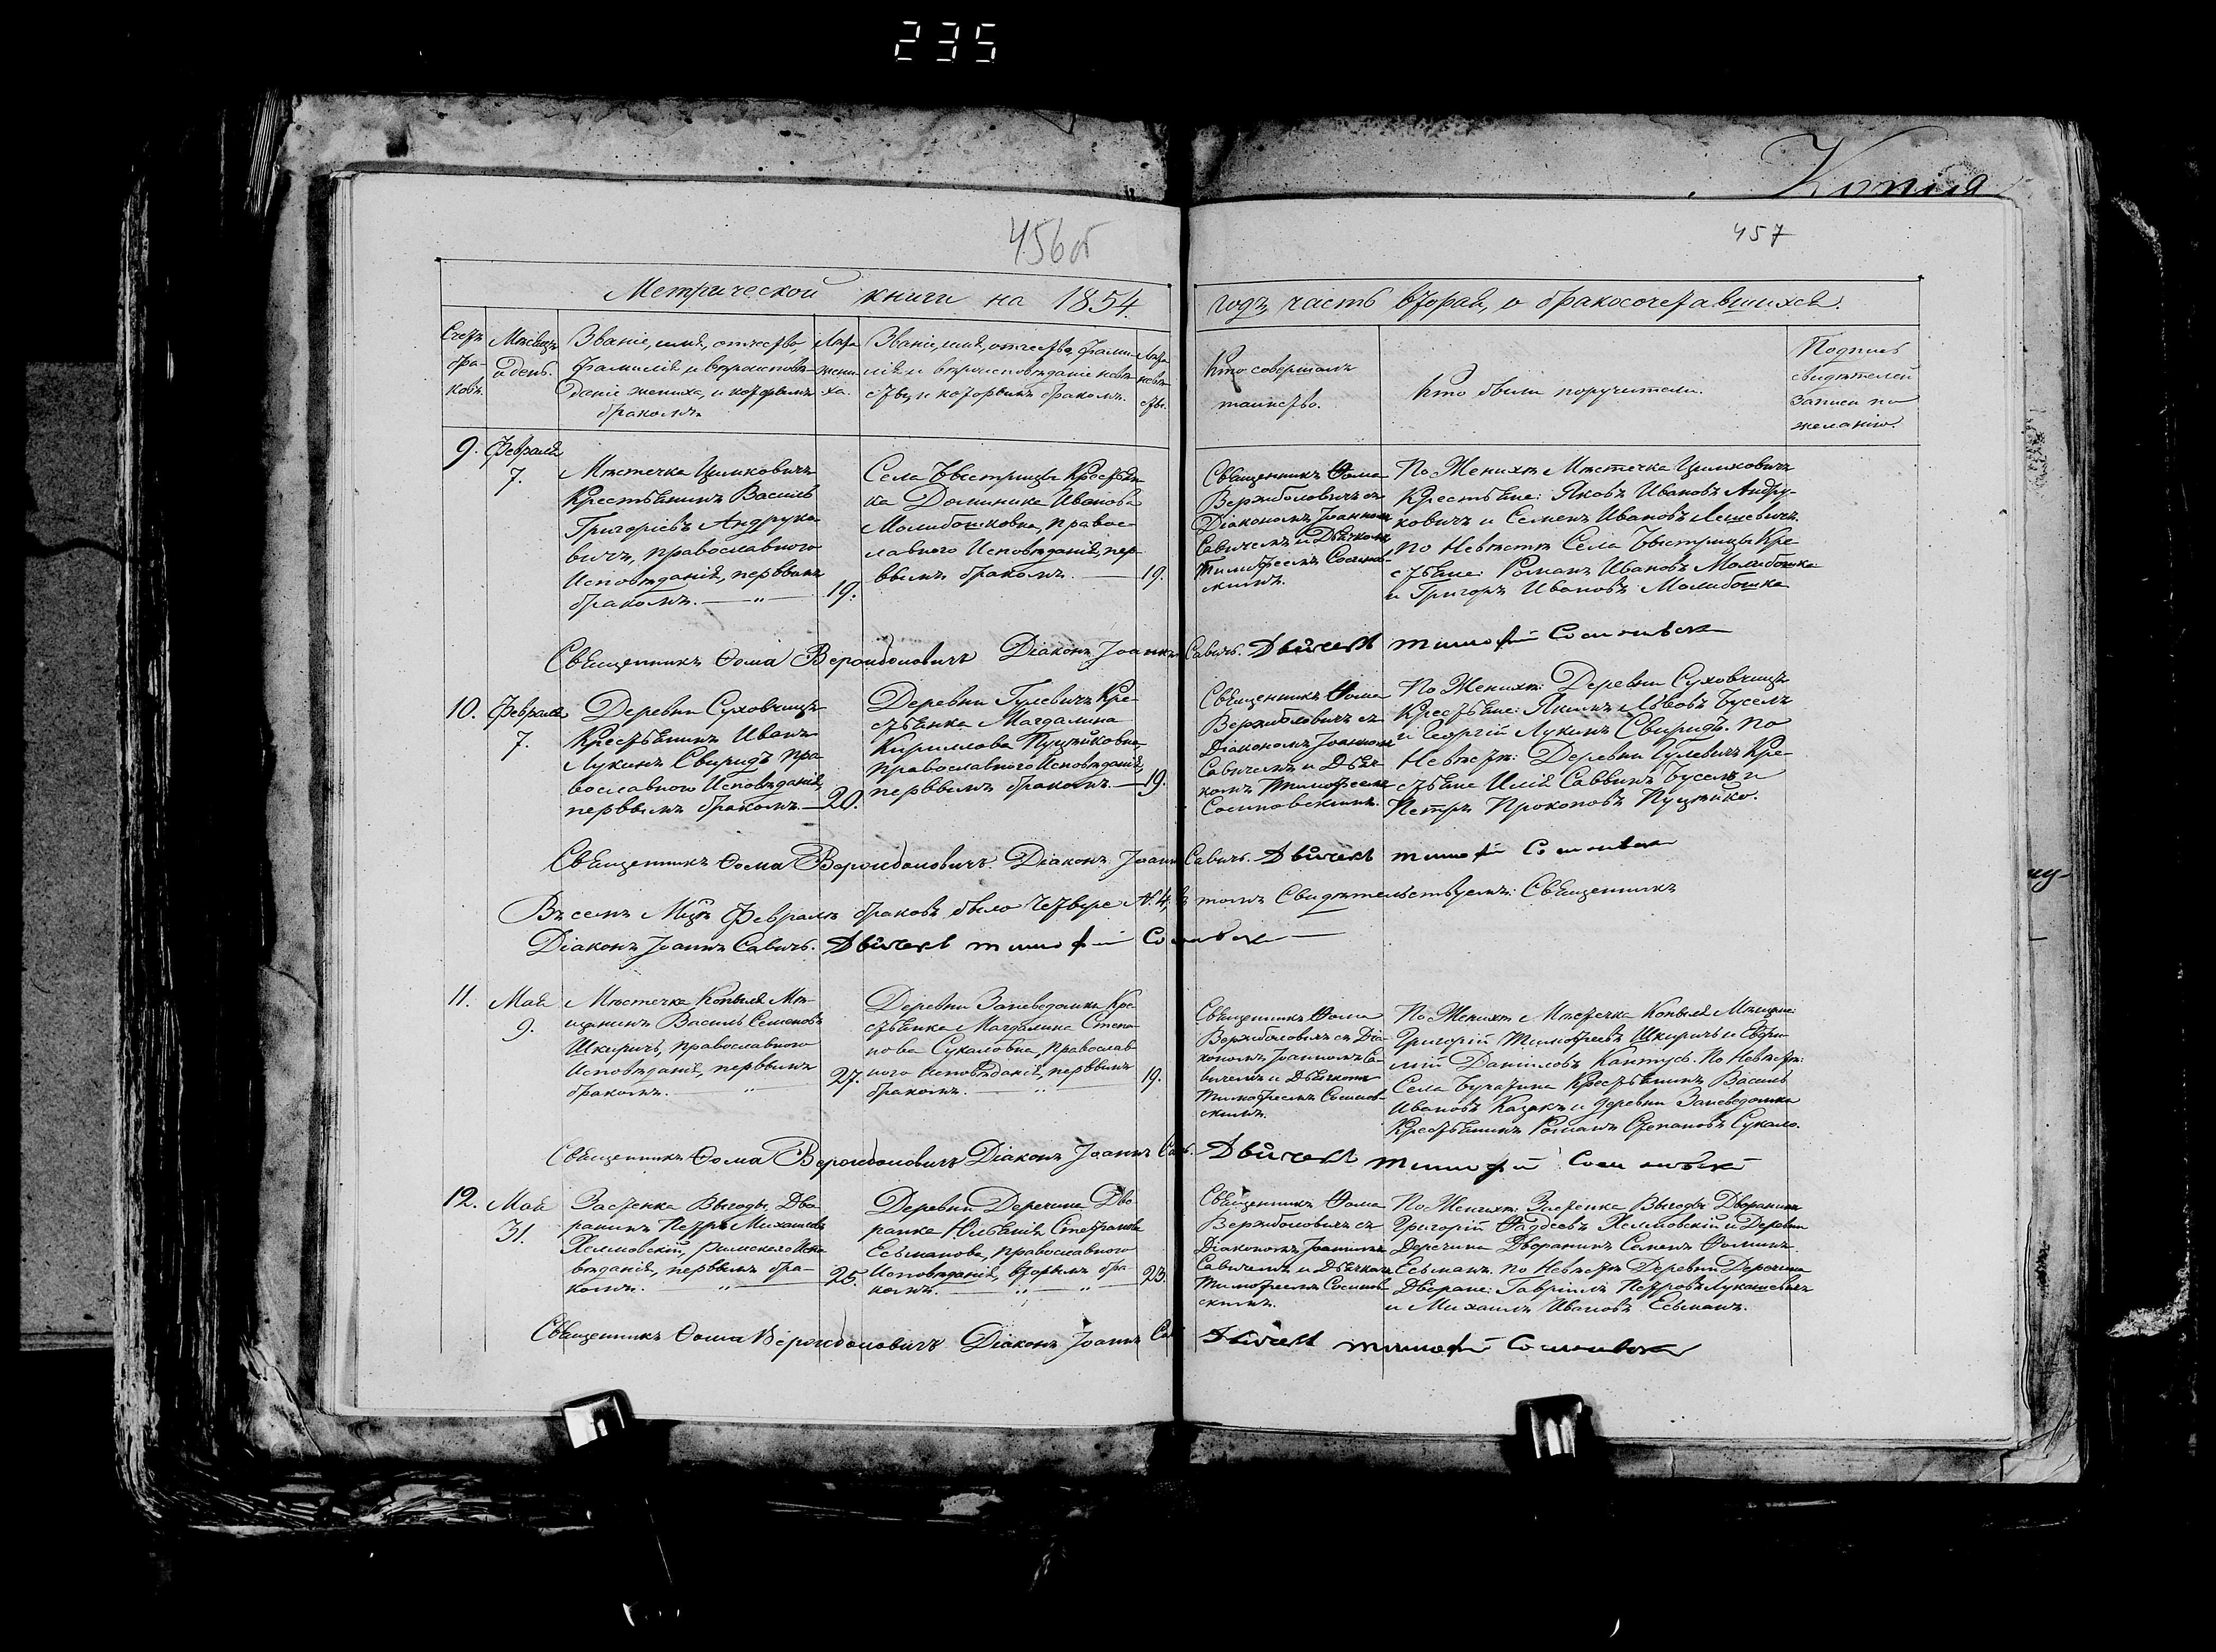 235
Копия
456об
457
Метрической книги на 1854.
годъ, часть вторая, о бракосочетавшихся.
Счетъ браковъ.
Мѣсяцъ и день.
Званіе, имя, отчество,
фамилія и вѣроисповѣ-
даніе жениха, и которымъ
бракомъ.
Лѣта жени-
ха.
Званіе, имя, отчество, фами-
лія и вѣроисповѣданіе невѣ-
сты, и которымъ бракомъ.
Лѣта невѣ-
сты.
Кто совершалъ
таинство.
Кто были поручители.
Подпись
свидѣтелей
записи по
желанію.
9. Февраля
7.
Мѣстечка Цимковичъ
Крестьянинъ Василь
Григорьевъ Андруко-
вичъ, православного
Исповѣданія, первымъ
бракомъ.
19.
Села Быстрицы Крестьян-
ка Доминика Иванова
Малибошковна, правос-
лавного Исповѣданія, пер-
вымъ бракомъ.
19.
Священникъ Ѳома
Вержболовичъ съ
Діакономъ Іоанномъ
Савичемъ и Дьячкомъ
Тимофеемъ Сосинов-
скимъ.
По Женихѣ Мѣстечка Цимковичъ
Крестьяне: Яковъ Ивановъ Андру-
ковичъ и Семенъ Ивановъ
По Невѣстѣ Села Быстрицы Кре-
стьяне: Романъ Ивановъ Малибошка
и Григорь Ивановъ Малибошка
Священникъ Ѳома Вержболовичъ Діаконъ Іоаннъ Савичъ. Дьячекъ Тимофей Сосиновски
10. Февраля
7.
Деревни Суховчицъ
Крестьянинъ Иванъ
Лукинъ Свиридъ пра-
вославного Исповѣданія,
первымъ бракомъ.
20.
Деревни Гулевичъ Кре-
стьянка Магдалина
Кирилова Пуцейковна,
православного Исповѣданія,
первымъ бракомъ.
19.
Священникъ Ѳома
Вержболовичъ съ
Діакономъ Іоанномъ
Савичемъ и Дьяч-
комъ Тимофеемъ
Сосиновскимъ.
По Женихѣ: Деревни Суховчицъ
Крестьяне: Якимъ Львовъ Буселъ
и Георгій Лукинъ Свиридъ. По
Невѣстѣ: Деревни Гулевичъ Кре-
стьяне Илія Саввинъ Буселъ и
Петръ Прокоповъ Пуцейко.
Священникъ Ѳома Вержболовичъ. Діаконъ Іоаннъ Савичъ. Дьячекъ Тимофей Сосиновски
Въ семъ Мцѣ Февралѣ браковъ было Четыре №. 4, въ томъ Свидѣтельствуемъ: Священникъ
Діаконъ Іоаннъ Савичъ. Дьячекъ Тимофей Сосиновски
11. Май
9.
Мѣстечка Копыля Мѣ-
щанинъ Василь Семеновъ
Шкиричъ, православного
Исповѣданія, первымъ
бракомъ.
27.
Деревни Заневедомки Кре-
стьянка Магдалина Степа-
нова Сукаловна, православ-
ного Исповѣданія, первымъ
бракомъ.
19.
Священникъ Ѳома
Вержболовичъ съ Діа-
кономъ Іоанномъ Са-
вичемъ и Дьячкомъ
Тимофеемъ Сосинов-
скимъ.
По Женихѣ Мѣстечка Копыля Мѣщане:
Григорій Тимофеевъ Шкиричъ и Ефи-
мій Даниловъ Кантусь. По Невѣстѣ:
Села Бучатина Крестьянинъ Василь
Ивановъ Казакъ и деревни Заневедомки
Крестьянинъ Романъ Степановъ Сукало.
Священникъ Ѳома Вержболовичъ Діаконъ Іоаннъ Савичъ. Дьячекъ Тимофей Сосиновскій
12. Май
31.
Застѣнка Выгоды, Дво-
ранинъ Петръ Михайловъ
Хелмовскій, Римского Испо-
вѣданія, первымъ бра-
комъ.
25.
Деревни Деречина Дво-
ранка Юліанія Стефанова
Есьманова, православного
Исповѣданія, вторымъ бра-
комъ.
23.
Священникъ Ѳома
Вержболовичъ съ
Діакономъ Іоанномъ
Савичемъ и Дьячкомъ
Тимофеемъ Сосинов-
скимъ.
По Женихѣ: Застѣнка Выгоды Дворанинъ
Григорій Фадѣевъ Хелмовскій и Деревни
Деречина Дворанинъ Семенъ Ѳоминъ
Есьманъ. По Невѣстѣ Деревни Деречина
Дворане: Гавріилъ Петровъ Лукашевичъ
и Михаилъ Ивановъ Есьманъ.
Священникъ Ѳома Вержболовичъ Діаконъ Іоаннъ Савичъ Дьячекъ Тимофей Сосиновски